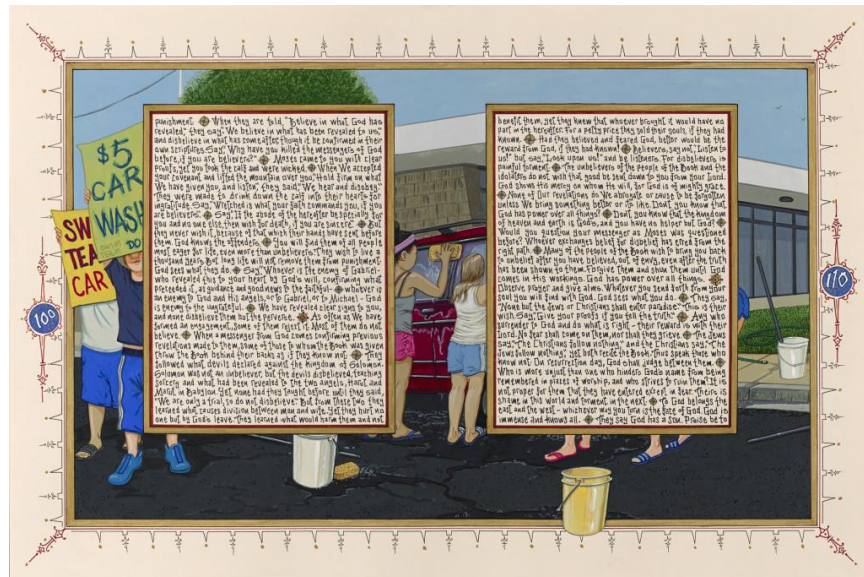 $5
CAR
WASH
SWIM
TEAM
DO
SW
TEA
CAR
100
110
punishment. When they are told, "Believe in what God has
revealed," they say, "We believe in what has been revealed to us,"
and disbelieve in what has come after, though it be confirmed in their
own scriptures. Say, "Why have you killed the messengers of God
before, if you are believers?" Moses came to you with clear
proofs, yet you took the calf and were wicked. When We accepted
your covenant, and lifted the mountain over you, "Hold firm on what
We have given you, and listen," they said, "We hear and disobey."
They were made to drink down the calf into their hearts for
ingratitude. Say, "Wretched is what your faith commands you, if you
are believers." Say, "If the abode of the hereafter be specially for
you and no one else, then wish for death, if you are sincere." But
they never wish it, because of that which their hands have sent before
them. God knows the offenders. You will find them of all people
most eager for life, even more than unbelievers. They wish to live a
thousand years. But long life will not remove them from punishment.
God sees what they do. Say, "Whoever is the enemy of Gabriel-
who revealed this to your heart by God's will, confirming what
preceded it, as guidance and good news to the faithful- whoever is
an enemy to God and His angels, or to Gabriel, or to Michael - God
is enemy to the ungrateful. We have revealed clear signs to you,
and none disbelieves them but the perverse. As often as We have
formed an engagement, some of them reject it. Most of them do not
believe. When a messenger from God comes confirming previous
revelations made to them, some of those to whom the Book was given
throw the Book behind their backs as if they know not. They
followed what devils declared against the kingdom of Solomon.
Solomon was not an unbeliever, but the devils disbelieved, teaching
sorcery and what had been revealed to the two angels, Harut and
Marut, in Babylon. Yet none had they taught before until they said,
"We are only a trial, so do not disbelieve." But from these two they
learned what causes division between man and wife. Yet they hurt no
one but by God's leave. They learned what would harm them and not
benefit them, yet they knew that whoever brought it would have no
part in the hereafter. For a petty price they sold their souls, if they had
known. Had they believed and feared God, better would be the
reward from God, if they had known. Believers, say not, "Listen to
us!" but say, "Look upon us!" and be listeners. For disbelievers, is
painful torment. The unbelievers of the people of the Book and the
idolaters do not wish that good be sent down to you from your Lord.
God shows His mercy on whom He will, for God is of mighty grace.
None of Our revelations do We abrogate or cause to be forgotten
unless We bring something better or its like. Don't you know that
God has power over all things? Don't you know that the kingdom
of heaven and earth is God's, and you have no helper but God?
Would you question your messenger as Moses was questioned
before? Whoever exchanges belief for disbelief has erred from the
right path. Many of the people of the Book wish to bring you back
to unbelief after you have believed, out of envy, even after the truth
has been shown to them. Forgive them and shun them until God
comes in His workings. God has power over all things.
Observe prayer and give alms. Whatever you send forth from your
soul you will find with God. God sees what you do. They say,
"None but the Jews or Christians shall enter paradise." This is their
wish. Say, "Give your proofs if you tell the truth." Any who
surrender to God and do what is right - their reward is with their
Lord. No fear shall come on them, nor shall they grieve. The Jews
say, "The Christians follow nothing," and the Christians say, "The
Jews follow nothing," yet both recite the Book. Thus speak those who
know not. On resurrection day, God shall judge between them.
Who is more unjust than one who hinders God's name from being
remembered in places of worship, and who strives to ruin them? It is
not proper for them that they have entered except in fear. Theirs is
shame in this world and torment in the next. To God belongs the
east and the west - whichever way you turn is the face of God. God is
immense and knows all. They say God has a son. Praise be to